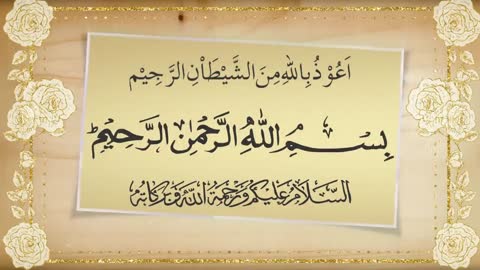 اَعُوْذُ بِاللّٰهِ مِنَ الشَّيْطٰنِ الرَّجِيْمِ
بِسْمِ اللّٰهِ الرَّحْمٰنِ الرَّحِيْمِ
السَّلَامُ عَلَيْكُمْ وَرَحْمَةُ اللّٰهِ وَبَرَكَاتُهُ